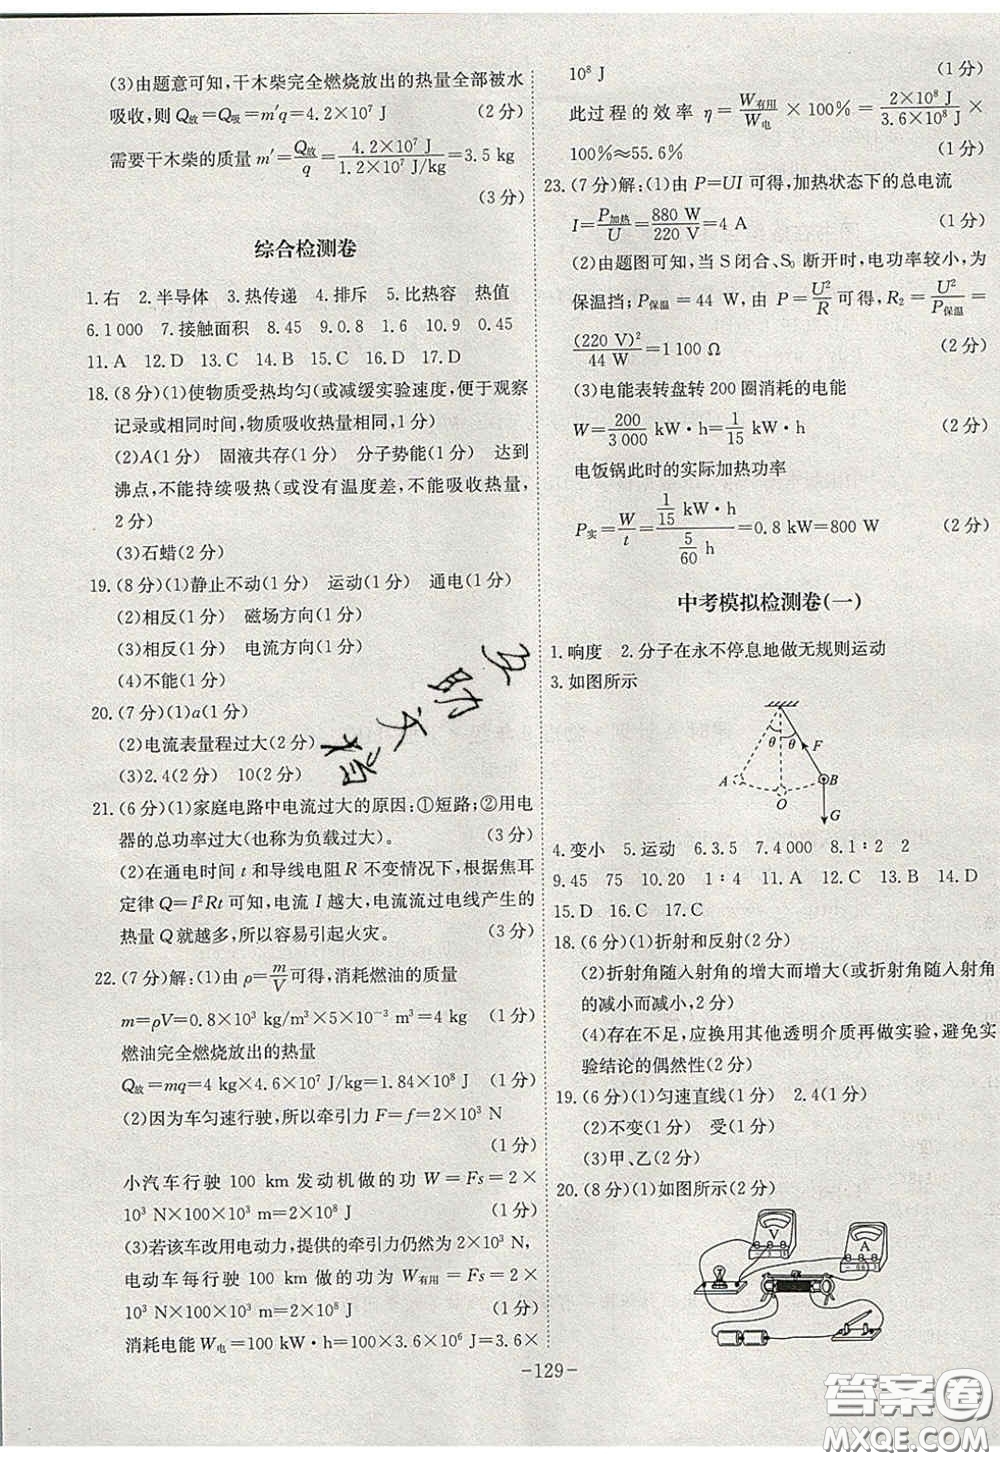 (3)由题意可知,干木柴完全燃烧放出的热量全部被水
吸收,则 Q放=Q吸=m′q=4.2×10⁷ J (2分)
需要干木柴的质量 m′=Q放/q=4.2×10⁷ J/1.2×10⁷ J/kg=3.5 kg
(3分)
综合检测卷
1.右 2.半导体 3.热传递 4.排斥 5.比热容 热值
6.1 000 7.接触面积 8.45 9.0.8 1.6 10.9 0.45
11.A 12.D 13.C 14.B 15.C 16.D 17.D
18.(8分)(1)使物质受热均匀(或减缓实验速度,便于观察
记录或相同时间,物质吸收热量相同,1分)
(2)A(1分) 固液共存(1分) 分子势能(1分) 达到
沸点,不能持续吸热(或没有温度差,不能吸收热量,
2分)
(3)石蜡(2分)
19.(8分)(1)静止不动(1分) 运动(1分) 通电(1分)
(2)相反(1分) 磁场方向(1分)
(3)相反(1分) 电流方向(1分)
(4)不能(1分)
20.(7分)(1)a(1分)
(2)电流表量程过大(2分)
(3)2.4(2分) 10(2分)
21.(6分)(1)家庭电路中电流过大的原因:①短路;②用电
器的总功率过大(也称为负载过大)。 (3分)
(2)在通电时间 t 和导线电阻 R 不变情况下,根据焦耳
定律 Q=I²Rt 可知,电流 I 越大,电流流过电线产生的
热量 Q 就越多,所以容易引起火灾。 (3分)
22.(7分)解:(1)由 ρ=m/V可得,消耗燃油的质量
m=ρV=0.8×10³ kg/m³×5×10⁻³ m³=4 kg (1分)
燃油完全燃烧放出的热量
Q放=mq=4 kg×4.6×10⁷ J/kg=1.84×10⁸ J (1分)
(2)因为车匀速行驶,所以牵引力 F=f=2×10³ N
(1分)
小汽车行驶 100 km 发动机做的功 W=Fs=2×
10³ N×100×10³ m=2×10⁸ J (1分)
(3)若该车改用电动力,提供的牵引力仍然为 2×10³ N,
电动车每行驶 100 km 做的功为 W有用=Fs=2×
10³ N×100×10³ m=2×10⁸ J (1分)
消耗电能 W电=100 kW·h=100×3.6×10⁶ J=3.6×
10⁸ J (1分)
此过程的效率 η=W有用/W电×100%=2×10⁸ J/3.6×10⁸ J×
100%≈55.6% (1分)
23.(7分)解:(1)由 P=UI 可得,加热状态下的总电流
I=P加热/U=880 W/220 V=4 A (1分)
(2)由题图可知,当 S 闭合、S₀ 断开时,电功率较小,为
保温挡;P保温=44 W,由 P=U²/R可得,R₂=U²/P保温=
(220 V)²/44 W=1 100 Ω (2分)
(3)电能表转盘转 200 圈消耗的电能
W=200/3 000 kW·h=1/15 kW·h (2分)
电饭锅此时的实际加热功率
P实=W/t=1/15 kW·h/5/60 h=0.8 kW=800 W (2分)
中考模拟检测卷(一)
1.响度 2.分子在永不停息地做无规则运动
3.如图所示
θ θ F
A B
O
G
4.变小 5.运动 6.3.5 7.4 000 8.1∶2 2
9.45 75 10.20 1∶4 11.A 12.B 13.C 14.D
15.D 16.C 17.C
18.(6分)(1)折射和反射(2分)
(2)折射角随入射角的增大而增大(或折射角随入射角
的减小而减小,2分)
(4)存在不足,应换用其他透明介质再做实验,避免实
验结论的偶然性(2分)
19.(6分)(1)匀速直线(1分) 2.4(1分)
(2)不变(1分) 受(1分)
(3)甲、乙(2分)
20.(8分)(1)如图所示(2分)
V
A
-129-
答案卷
MXQE.COM